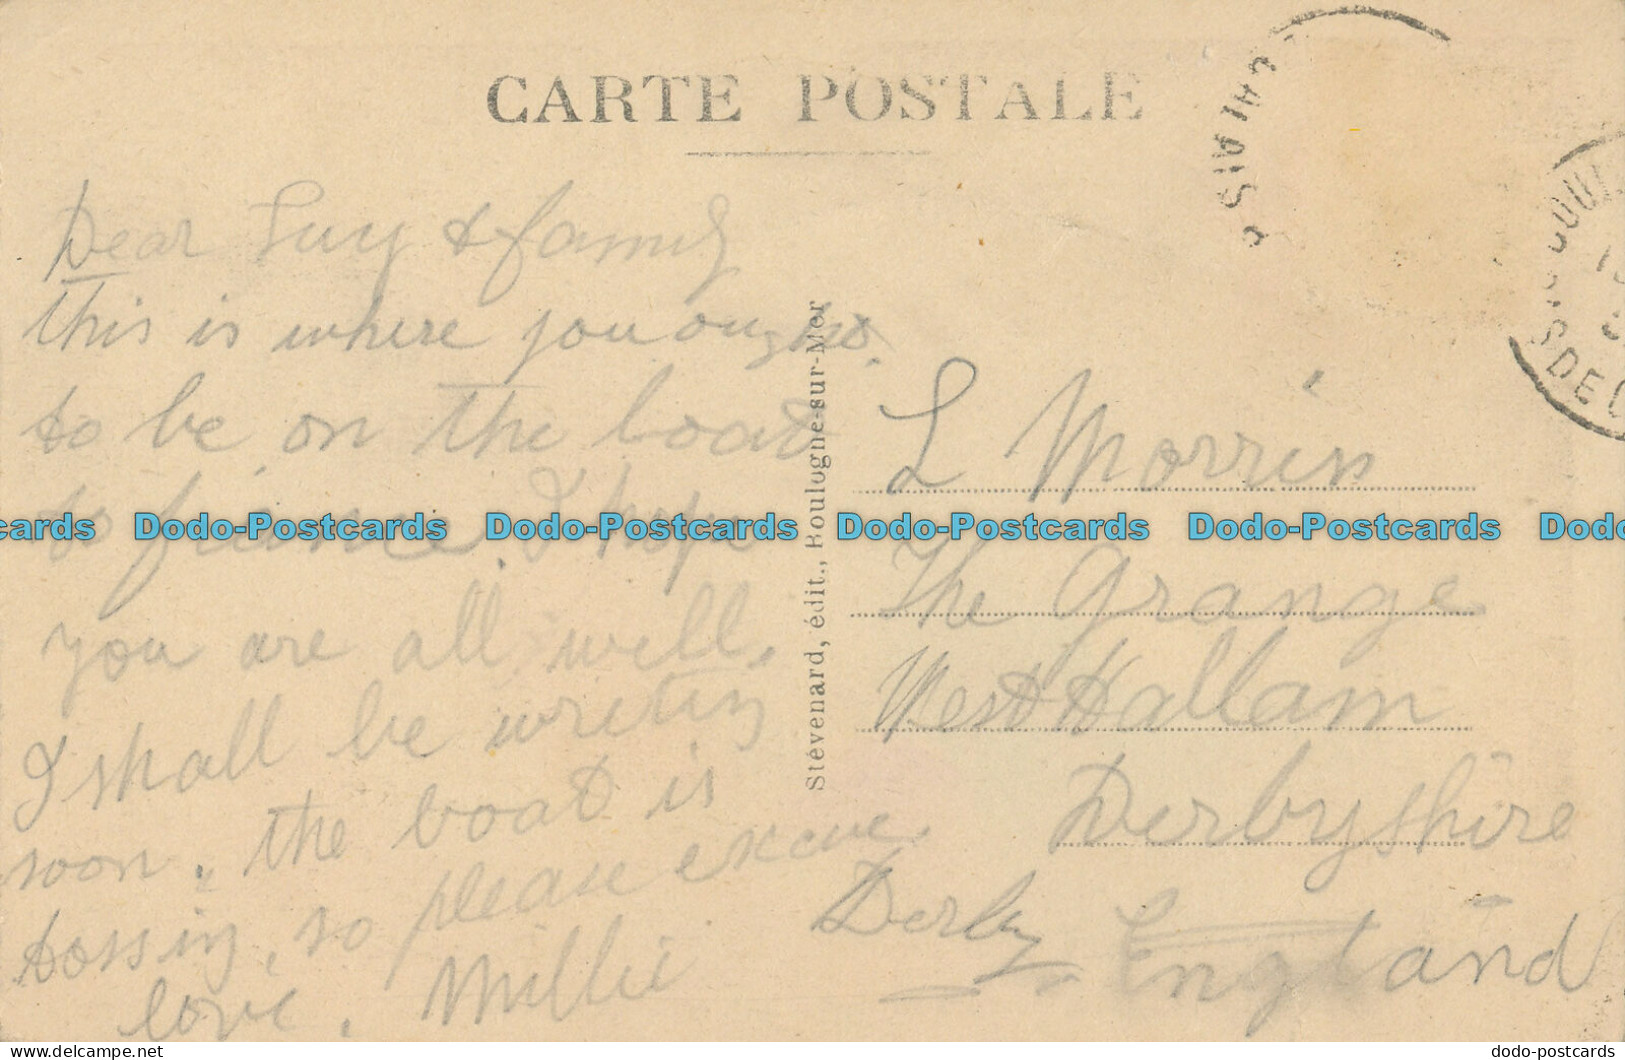 CARTE POSTALE
CALAIS
BOUL
S DE C
Dear & family
this is where you ought
to be on the boat
to france. I hope
you are all well.
I shall be writing
soon. the boat is
tossing, so please excuse.
love. Millie
Stévenard, édit., Boulogne-sur-Mer
L Morris
The Grange
West Hallam
Derbyshire
Derby England
cards Dodo-Postcards Dodo-Postcards Dodo-Postcards Dodo-Postcards Dodo
DELCAMPE.NET dodo-postcards